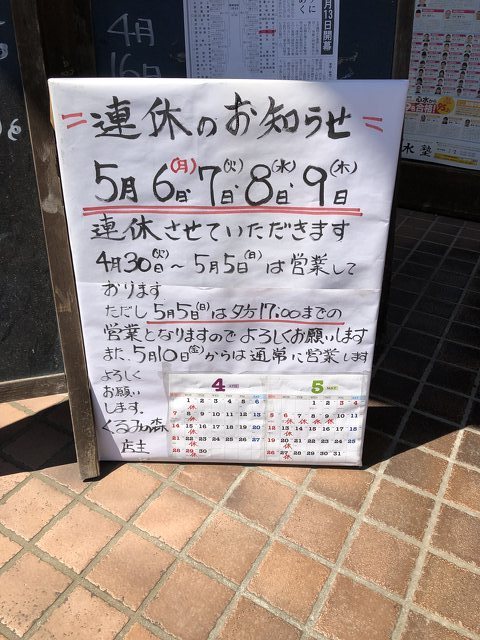 4月
16日
月13日開幕
＝連休のお知らせ＝
5月6日(月)7日(火)8日(水)9日(木)
連休させていただきます
4月30日(火)～5月5日(日)は営業して
おります
ただし5月5日(日)は夕方17:00までの
営業となりますのでよろしくお願いします
また、5月10日(金)からは通常に営業します
よろしく
お願い
します.
くるみの森
店主
4
5
1 2 3 4 5 6
休
7 8 9 10 11 12 13
休
14 15 16 17 18 19 20
休
21 22 23 24 25 26 27
休
28 29 30
休
1 2 3 4
5 6 7 8 9 10 11
休 休 休 休
12 13 14 15 16 17 18
休
19 20 21 22 23 24 25
休
26 27 28 29 30 31
休